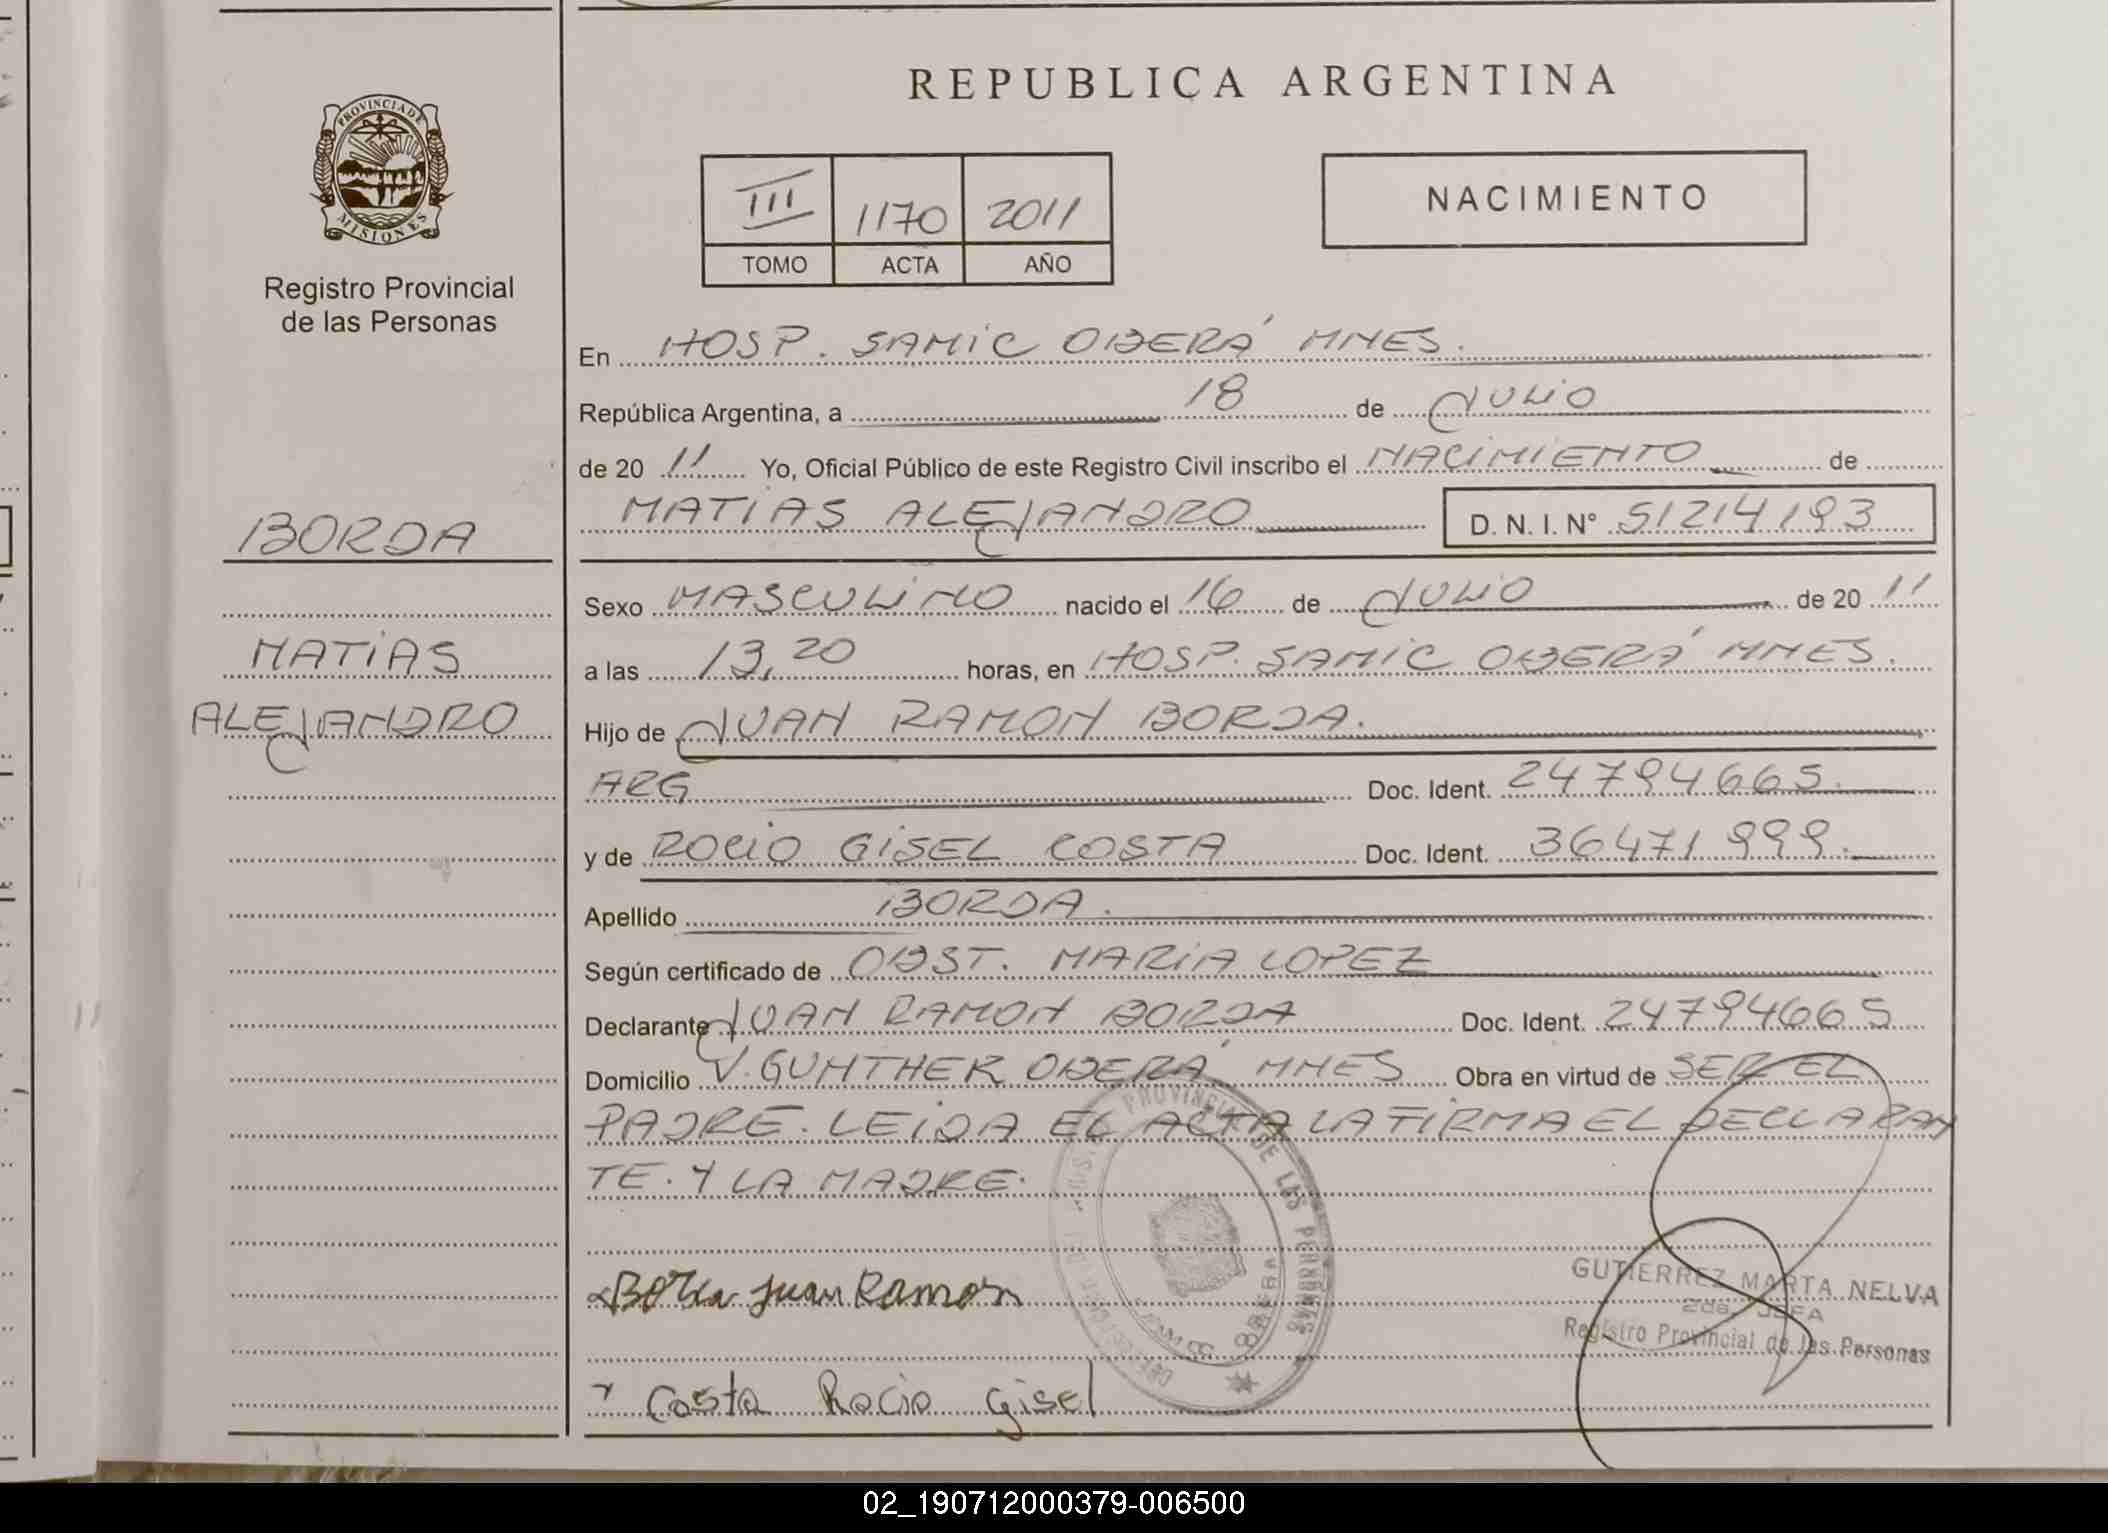 REPUBLICA ARGENTINA
PROVINCIA DE
MISIONES
Registro Provincial
de las Personas
III 1170 2011
TOMO ACTA AÑO
NACIMIENTO
En HOSP. SAMIC OBERÁ MNES.
República Argentina, a 18 de JULIO
de 20 11 Yo, Oficial Público de este Registro Civil inscribo el NACIMIENTO de
MATIAS ALEJANDRO D. N. I. N° 51214193
BORDA
MATIAS
ALEJANDRO
Sexo MASCULINO nacido el 16 de JULIO de 20 11
a las 13,20 horas, en HOSP. SAMIC OBERÁ MNES.
Hijo de JUAN RAMON BORDA.
ARG Doc. Ident. 24794665.
y de ROCIO GISEL COSTA Doc. Ident. 36471999.
Apellido BORDA.
Según certificado de OBST. MARIA LOPEZ
Declarante JUAN RAMON BORDA Doc. Ident. 24794665
Domicilio V. GUNTHER OBERÁ MNES Obra en virtud de SER EL
PADRE. LEIDA EL ACTA LA FIRMA EL DECLARAN
TE. Y LA MADRE.
PROVINCIAL DE LAS PERSONAS
Borda Juan Ramon
GUTIERREZ MARTA NELVA
2da. JEFA
Registro Provincial de las Personas
Costa Rocio Gisel
02_190712000379-006500